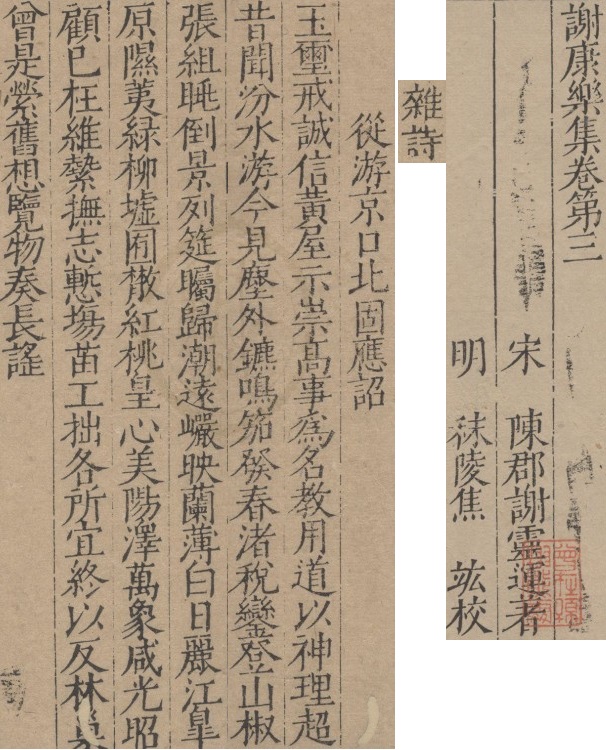 謝康樂集卷第三
宋 陳郡謝靈運著
明 秣陵焦 竑校
雜詩
從游京口北固應詔
玉璽戒誠信黃屋示崇高事爲名教用道以神理超
昔聞汾水游今見塵外鑣鳴笳發春渚稅鑾登山椒
張組眺倒景列筵矚歸潮遠巖映蘭薄白日麗江皐
原隰荑緑柳墟囿散紅桃皇心美陽澤萬象咸光昭
顧已枉維縶撫志慙塲苗工拙各所宜終以反林巢
曾是縈舊想覽物奏長謠